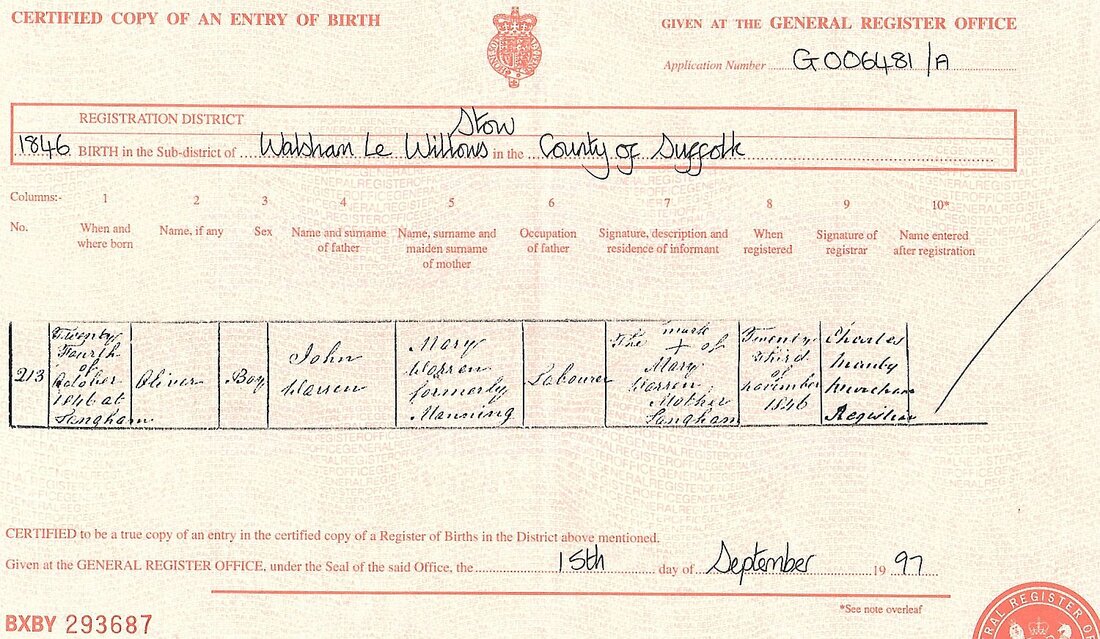 CERTIFIED COPY OF AN ENTRY OF BIRTH
GIVEN AT THE GENERAL REGISTER OFFICE
Application Number G006481/A
REGISTRATION DISTRICT Stow
1846 BIRTH in the Sub-district of Walsham Le Willows in the County of Suffolk
Columns:- 1 2 3 4 5 6 7 8 9 10*
No. When and where born Name, if any Sex Name and surname of father Name, surname and maiden surname of mother Occupation of father Signature, description and residence of informant When registered Signature of registrar Name entered after registration
213
Twenty
Fourth
of
October
1846 at
Langham
Oliver
Boy
John
Warren
Mary
Warren
formerly
Manning
Labourer
The mark
+ of
Mary
Warren
Mother
Langham
Twenty
Third
of
November
1846
Charles
Registrar
CERTIFIED to be a true copy of an entry in the certified copy of a Register of Births in the District above mentioned.
Given at the GENERAL REGISTER OFFICE, under the Seal of the said Office, the 15th day of September 1997
*See note overleaf
BXBY 293687